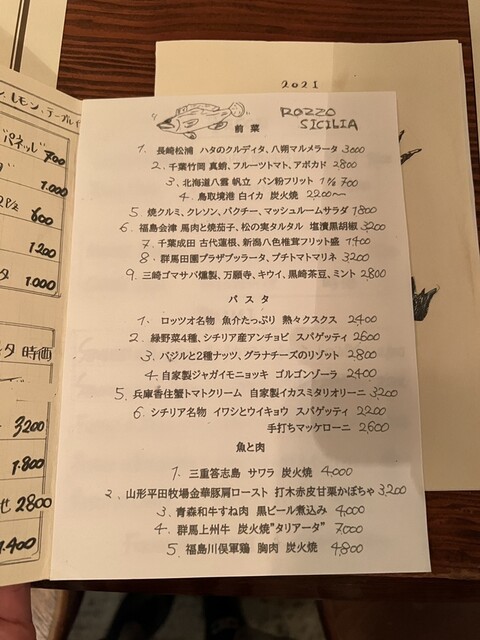 2021
ROZZO
SICILIA
前菜
1. 長崎松浦 ハタのクルディタ、八朔マルメラータ 3000
2. 千葉竹岡 真蛸、フルーツトマト、アボカド 2800
3. 北海道八雲 帆立 パン粉フリット 1ケ 700
4. 鳥取境港 白イカ 炭火焼 2200〜
5. 焼クルミ、クレソン、パクチー、マッシュルームサラダ 1800
6. 福島会津 馬肉と焼茄子、松の実タルタル 塩漬黒胡椒 3200
7. 千葉成田 古代蓮根、新潟八色椎茸フリット盛 1400
8. 群馬田園プラザブッラータ、プチトマトマリネ 3200
9. 三崎ゴマサバ燻製、万願寺、キウイ、黒崎茶豆、ミント 2800
パスタ
1. ロッツオ名物 魚介たっぷり 熱々クスクス 2400
2. 緑野菜4種、シチリア産アンチョビ スパゲッティ 2600
3. バジルと2種ナッツ、グラナチーズのリゾット 2800
4. 自家製ジャガイモニョッキ ゴルゴンゾーラ 2400
5. 兵庫香住蟹トマトクリーム 自家製イカスミタリオリーニ 3200
6. シチリア名物 イワシとウイキョウ スパゲッティ 2200
手打ちマッケローニ 2600
魚と肉
1. 三重答志島 サワラ 炭火焼 4,000
2. 山形平田牧場金華豚肩ロースト 打木赤皮甘栗かぼちゃ 3,200
3. 青森和牛すね肉 黒ビール煮込み 4,000
4. 群馬上州牛 炭火焼"タリアータ" 7,000
5. 福島川俣軍鶏 胸肉 炭火焼 4,800
レモン・テーブル
700
1.000
600
1200
1.000
時価
3200
1.800
2800
1.400